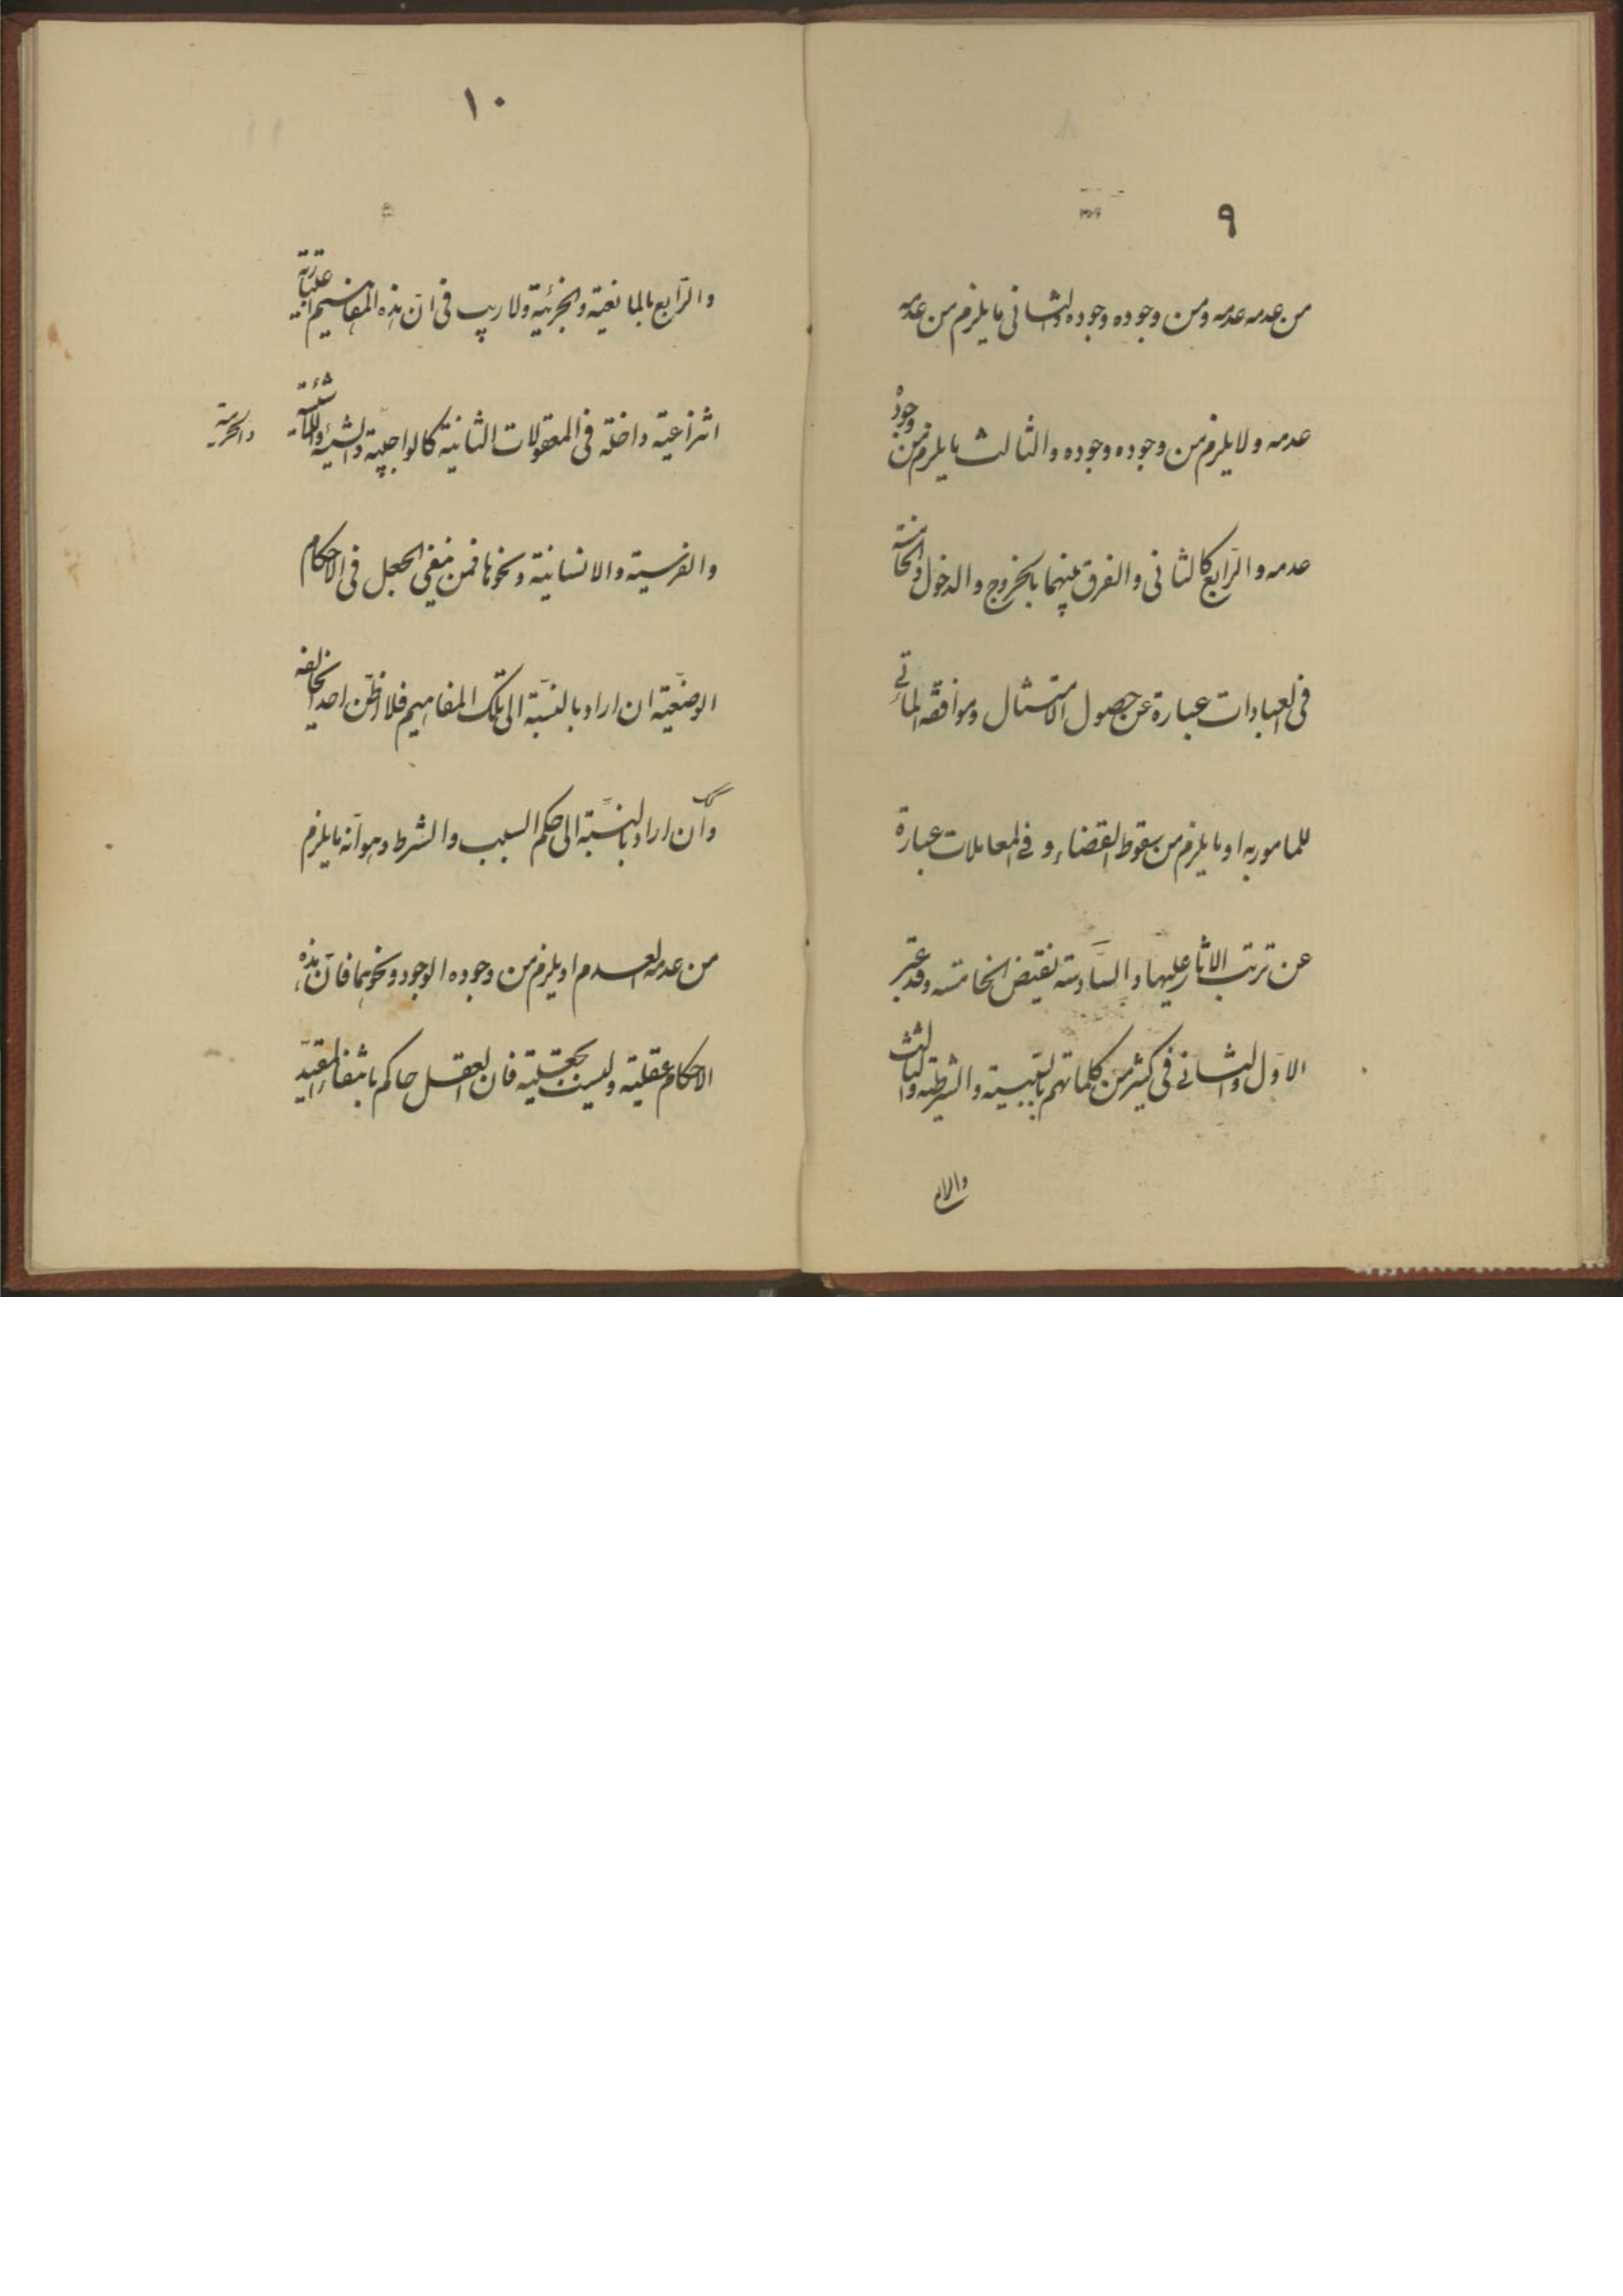 ٩
من عدمه عدمه ومن وجوده وجوده والثانی ما یلزم من عدمه
عدمه ولا یلزم من وجوده وجوده والثالث ما یلزم من وجوده
عدمه والرّابع کالثانی والفرق بینهما بالخروج والدخول والخامسة
فی العبادات عبارة عن حصول الامتثال وموافقة الماتی
للمامور به او ما یلزم من سقوط القضاء و فی المعاملات عبارة
عن ترتب الاثار علیها والسّادسة نقیض الخامسة وقد عبّر
الاوّل والثانی فی کثیر من کلماتهم بالسّببیة والشرطیة والثالث
١٠
والرّابع بالمانعیة والجزئیة ولا ریب فی انّ هذه المفاهیم اعتباریة
انتزاعیة داخلة فی المعقولات الثانیة کالواجبیة والشیئیة
والفرسیة والانسانیة ونحوها فمن ینفی الجعل فی الاحکام
الوضعیّة ان اراد بالنسّبة الی تلک المفاهیم فلا اظنّ احدا یخالفه
وان اراد بالنسبة الی حکم السبب والشرط وهو انّه ما یلزم
من عدمه العدم او یلزم من وجوده الوجود ونحوهما فانّ هذه
الاحکام عقلیة ولیست بجعلیة فان العقل حاکم بانتفاء المقیّد